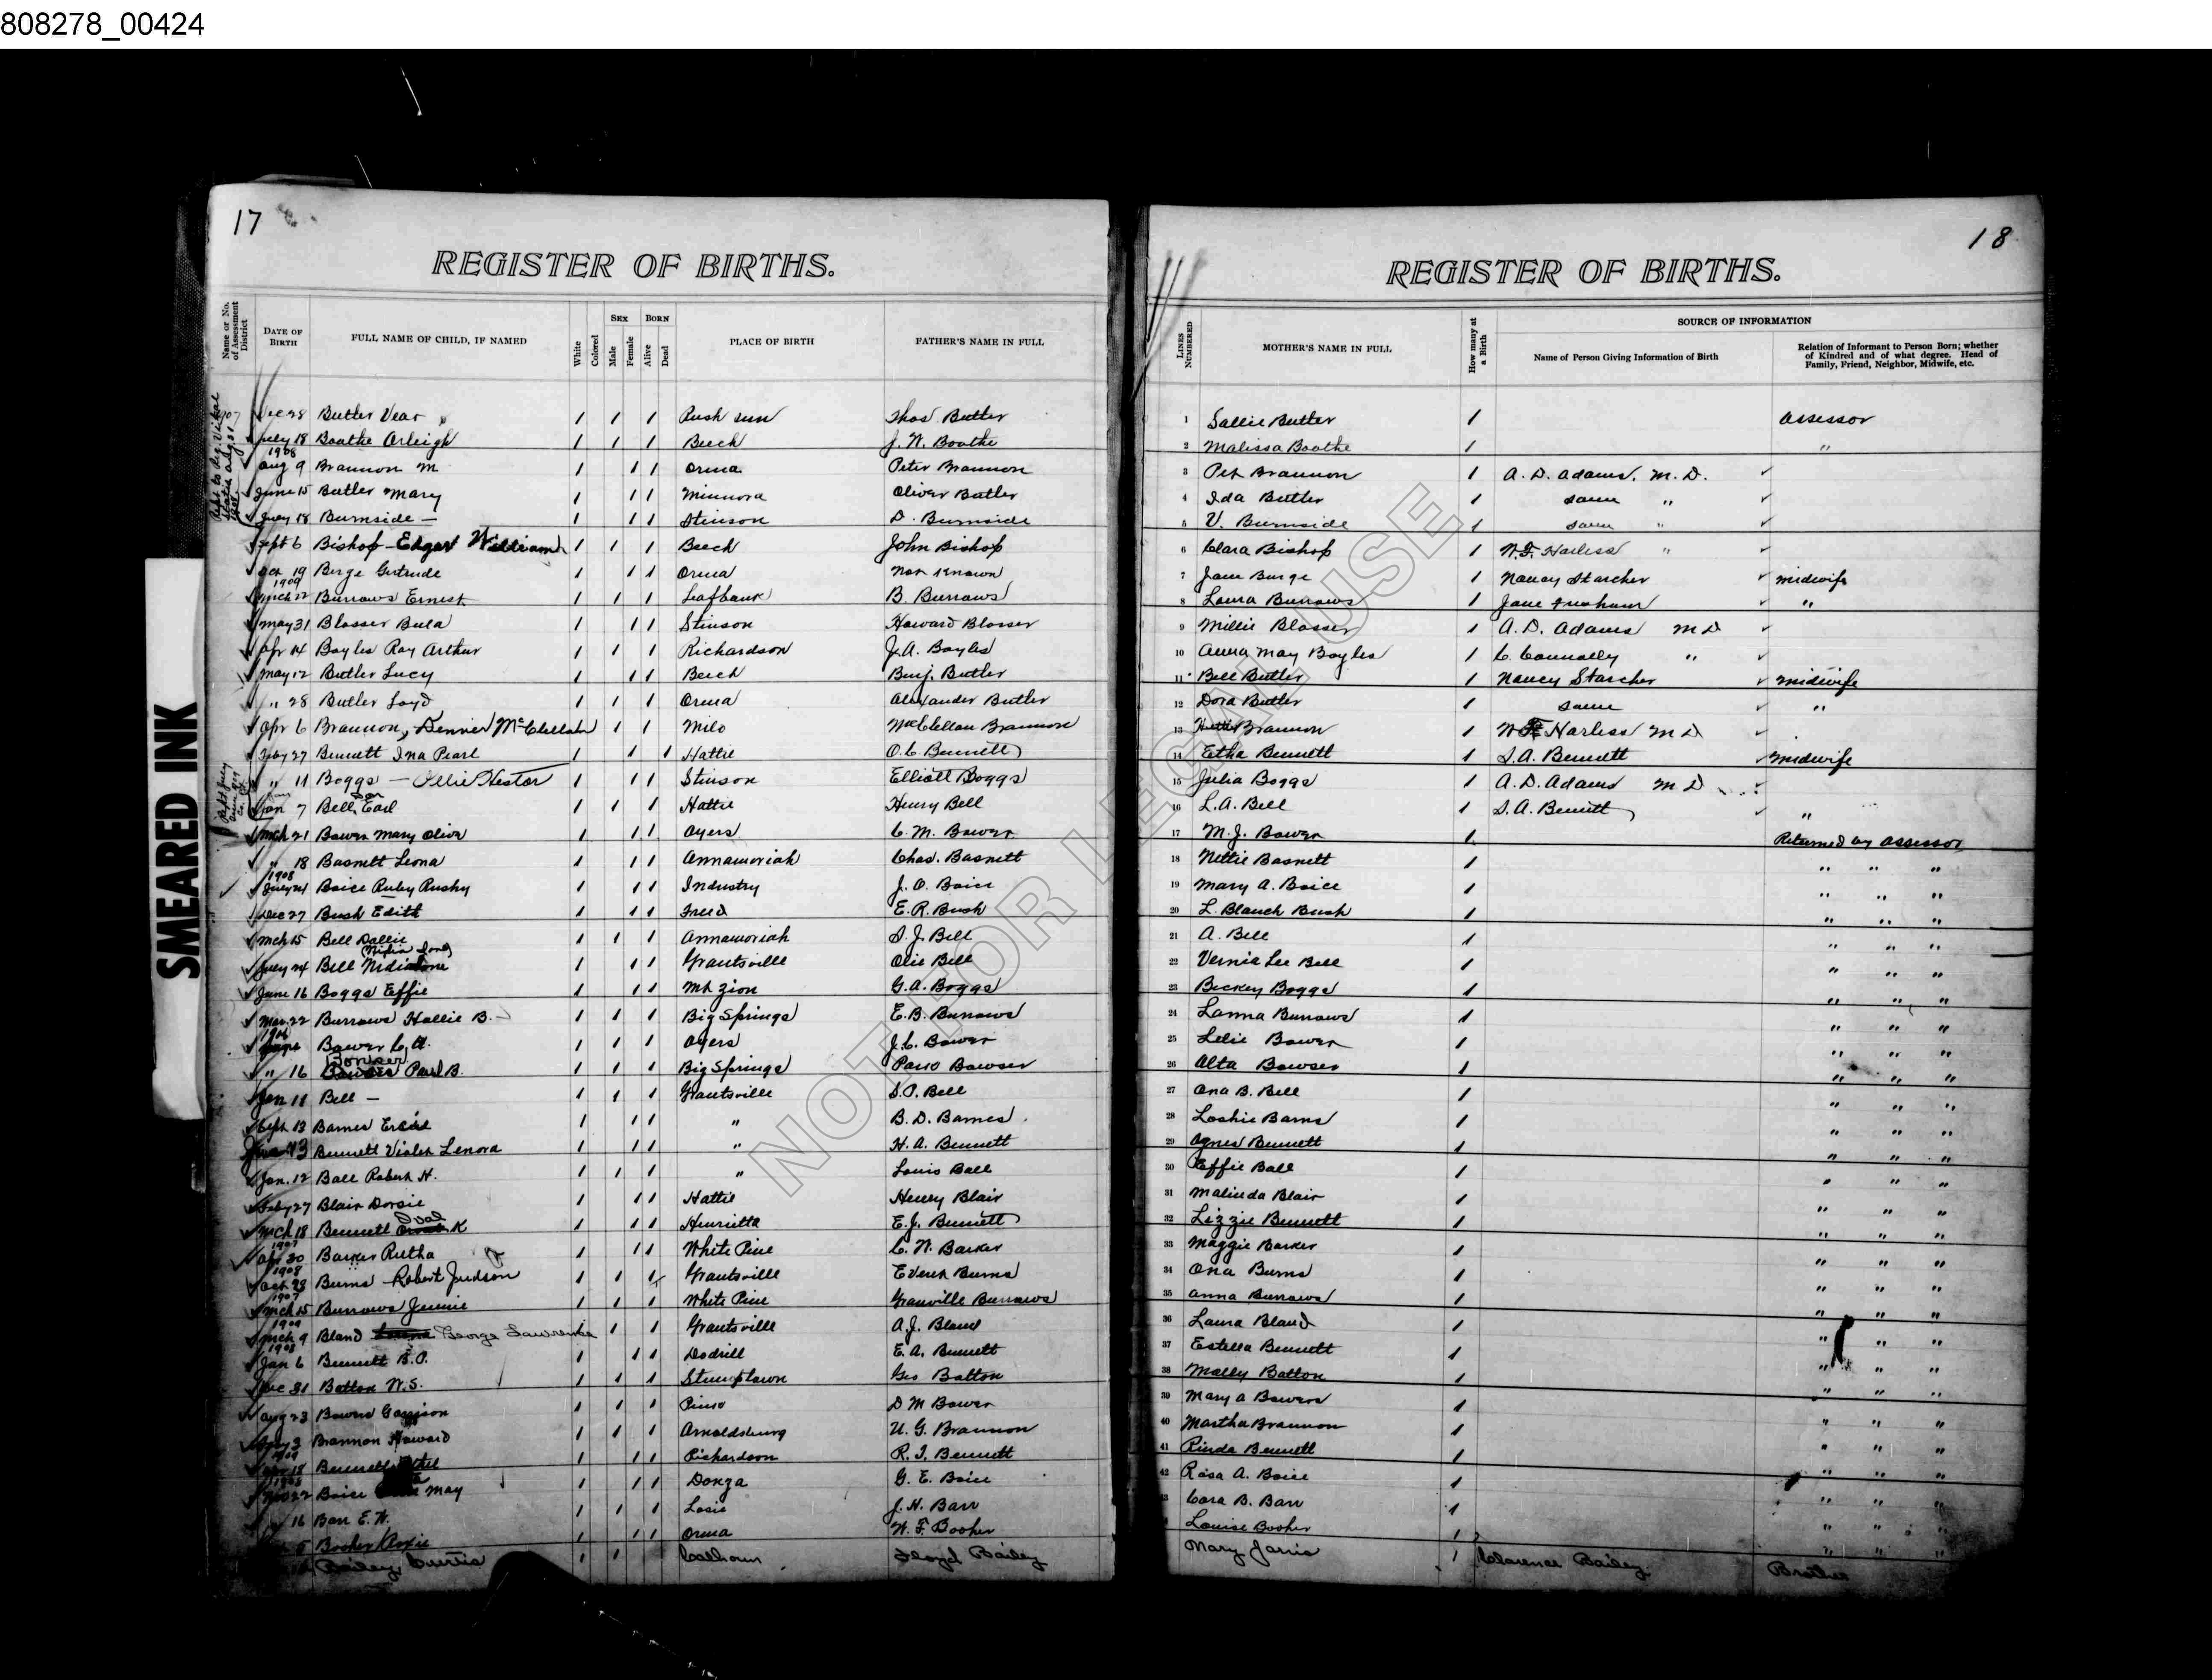 808278_00424
17
REGISTER OF BIRTHS.
Name or No. of Assessment District
DATE OF BIRTH
FULL NAME OF CHILD, IF NAMED
White
Colored
SEX
Male
Female
BORN
Alive
Dead
PLACE OF BIRTH
FATHER'S NAME IN FULL
1907 Dec 28 Butler Vear 1 1 1 Rush run Thos Butler
July 18 Boathe Arleigh 1 1 1 Beech J. W. Boathe
1908
Aug 9 Brannon M 1 1 1 Orma Peter Brannon
June 15 Butler Mary 1 1 1 Minnora Oliver Butler
July 18 Burnside — 1 1 1 Stinson D. Burnside
Sept 6 Bishop - Edgar William 1 1 1 Beech John Bishop
Oct 19 Berge Gertrude 1 1 1 Orma Not Known
1909
Mch 22 Burrows Ernest 1 1 1 Leafbank B. Burrows
May 31 Blosser Bula 1 1 1 Stinson Howard Blosser
Apr 14 Bayles Ray Arthur 1 1 1 Richardson J.A. Bayles
May 12 Butler Lucy 1 1 1 Beech Benj. Butler
" 28 Butler Loyd 1 1 1 Orma Alexander Butler
Apr 6 Brannon, Denver McClellan 1 1 1 Milo McClellan Brannon
Feby 27 Bennett Ina Pearl 1 1 1 Hattie O. C. Bennett
" 11 Boggs — Ollie Hester 1 1 1 Stinson Elliott Boggs
Jan 7 Bell, Earl 1 1 1 Hattie Henry Bell
Mch 21 Bower Mary Olive 1 1 1 Ayers C. M. Bower
" 18 Basnett Leona 1 1 1 Annamoriah Chas. Basnett
1908
July 24 Boice Ruby Rushy 1 1 1 Industry J. O. Boice
Dec 27 Bush Edith 1 1 1 Freed E. R. Bush
Mch 15 Bell Dallie 1 1 1 Annamoriah S. J. Bell
July 24 Bell 1 1 1 Grantsville Olie Bell
June 16 Boggs Effie 1 1 1 Mt Zion G. A. Boggs
Mar 22 Burrows Hallie B. 1 1 1 Big Springs E. B. Burrows
Bower C. A. 1 1 1 Ayers J. C. Bower
Bowser
" 16 Paul B. 1 1 1 Big Springs Bowser
Jan 11 Bell — 1 1 1 Grantsville S. P. Bell
Sept 13 Barnes 1 1 1 " B. D. Barnes
13 Bennett Violet Lenora 1 1 1 " H. A. Bennett
Jan. 12 Ball Robert H. 1 1 1 " Louis Ball
Feby 27 Blair Dorsie 1 1 1 Hattie Henry Blair
Mch 18 Bennett Oval K 1 1 1 Henrietta E. J. Bennett
1907
Apr 30 Barker Retha 1 1 1 White Pine C. W. Barker
1908
Oct 28 Burns - Robert Judson 1 1 1 Grantsville Everet Burns
1907
Mch 15 Burrows Jennie 1 1 1 White Pine Granville Burrows
1909
Mch 9 Bland George Lawrence 1 1 Grantsville A. J. Bland
1908
Jan 6 Bennett B. P. 1 1 1 Dodrill E. A. Bennett
Dec 31 Batton W. S. 1 1 1 Stumptown Geo Batton
Aug 23 Bowers Garrison 1 1 1 D M Bower
Brannon Howard 1 1 1 Arnoldsburg U. G. Brannon
Bennett 1 1 1 Richardson R. T. Bennett
22 Boice May 1 1 1 Donza G. E. Boice
16 Barr E. W. 1 1 1 Losie J. H. Barr
Booher Roxie 1 1 1 Orma W. F. Booher
Bailey, Curtis 1 1 Calhoun Floyd Bailey
SMEARED INK
NOT FOR LEGAL USE
18
REGISTER OF BIRTHS.
LINES NUMBERED
MOTHER'S NAME IN FULL
How many at a Birth
SOURCE OF INFORMATION
Name of Person Giving Information of Birth
Relation of Informant to Person Born; whether of Kindred and of what degree. Head of Family, Friend, Neighbor, Midwife, etc.
1 Sallie Butler 1 Assessor
2 Malissa Boathe 1 "
3 Pet Brannon 1 A. D. Adams, M. D.
4 Ida Butler 1 same "
5 V. Burnside 1 same "
6 Clara Bishop 1 W. F. Harless "
7 Jane Burge 1 Nancy Starcher midwife
8 Laura Burrows 1 Jane "
9 Millie Blosser 1 A. D. Adams M D
10 Anna May Bayles 1 C. Connolly "
11 Bell Butler 1 Nancy Starcher midwife
12 Dora Butler 1 same "
13 Brannon 1 W F Harless M D
14 Etha Bennett 1 S. A. Bennett midwife
15 Julia Boggs 1 A. D. Adams M D
16 L. A. Bell 1 S. A. Bennett "
17 M. J. Bower 1 Returned by Assessor
18 Nettie Basnett 1 " " "
19 Mary A. Boice 1 " " "
20 L. Blanch Bush 1 " " "
21 A. Bell 1 " " "
22 Vernia Lee Bell 1 " " "
23 Beckey Boggs 1 " " "
24 Lanna Burrows 1 " " "
25 Lelie Bower 1 " " "
26 Alta Bowser 1 " " "
27 Ona B. Bell 1 " " "
28 Loshie Barns 1 " " "
29 Agnes Bennett 1 " " "
30 Effie Ball 1 " " "
31 Malinda Blair 1 " " "
32 Lizzie Bennett 1 " " "
33 Maggie Barker 1 " " "
34 Ona Burns 1 " " "
35 Anna Burrows 1 " " "
36 Laura Bland 1 " " "
37 Estella Bennett 1 " " "
38 Molly Batton 1 " " "
39 Mary A Bowers 1 " " "
40 Martha Brannon 1 " " "
41 Rinda Bennett 1 " " "
42 Rosa A. Boice 1 " " "
Cora B. Barr 1 " " "
Louise Booher 1 " " "
Mary Jarvis 1 Clarence Bailey Brother